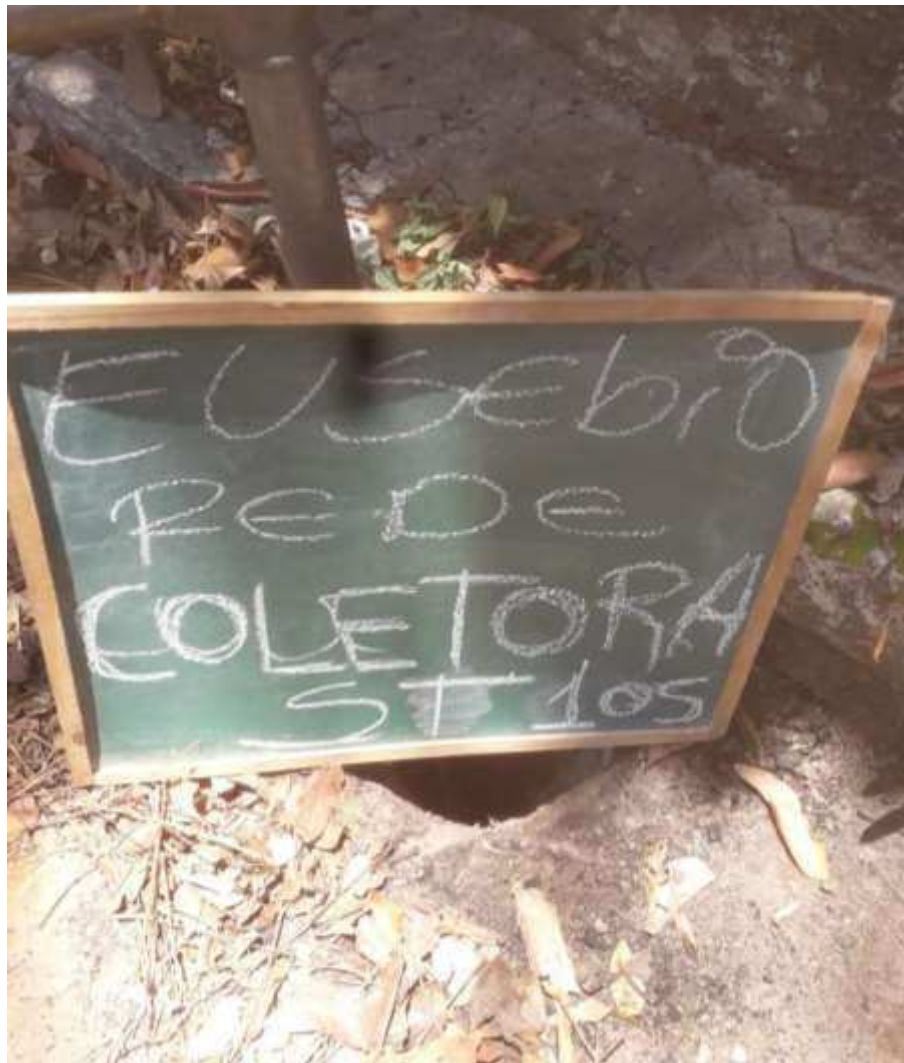 EUSEbiO
REDE
COLETORA
ST 105